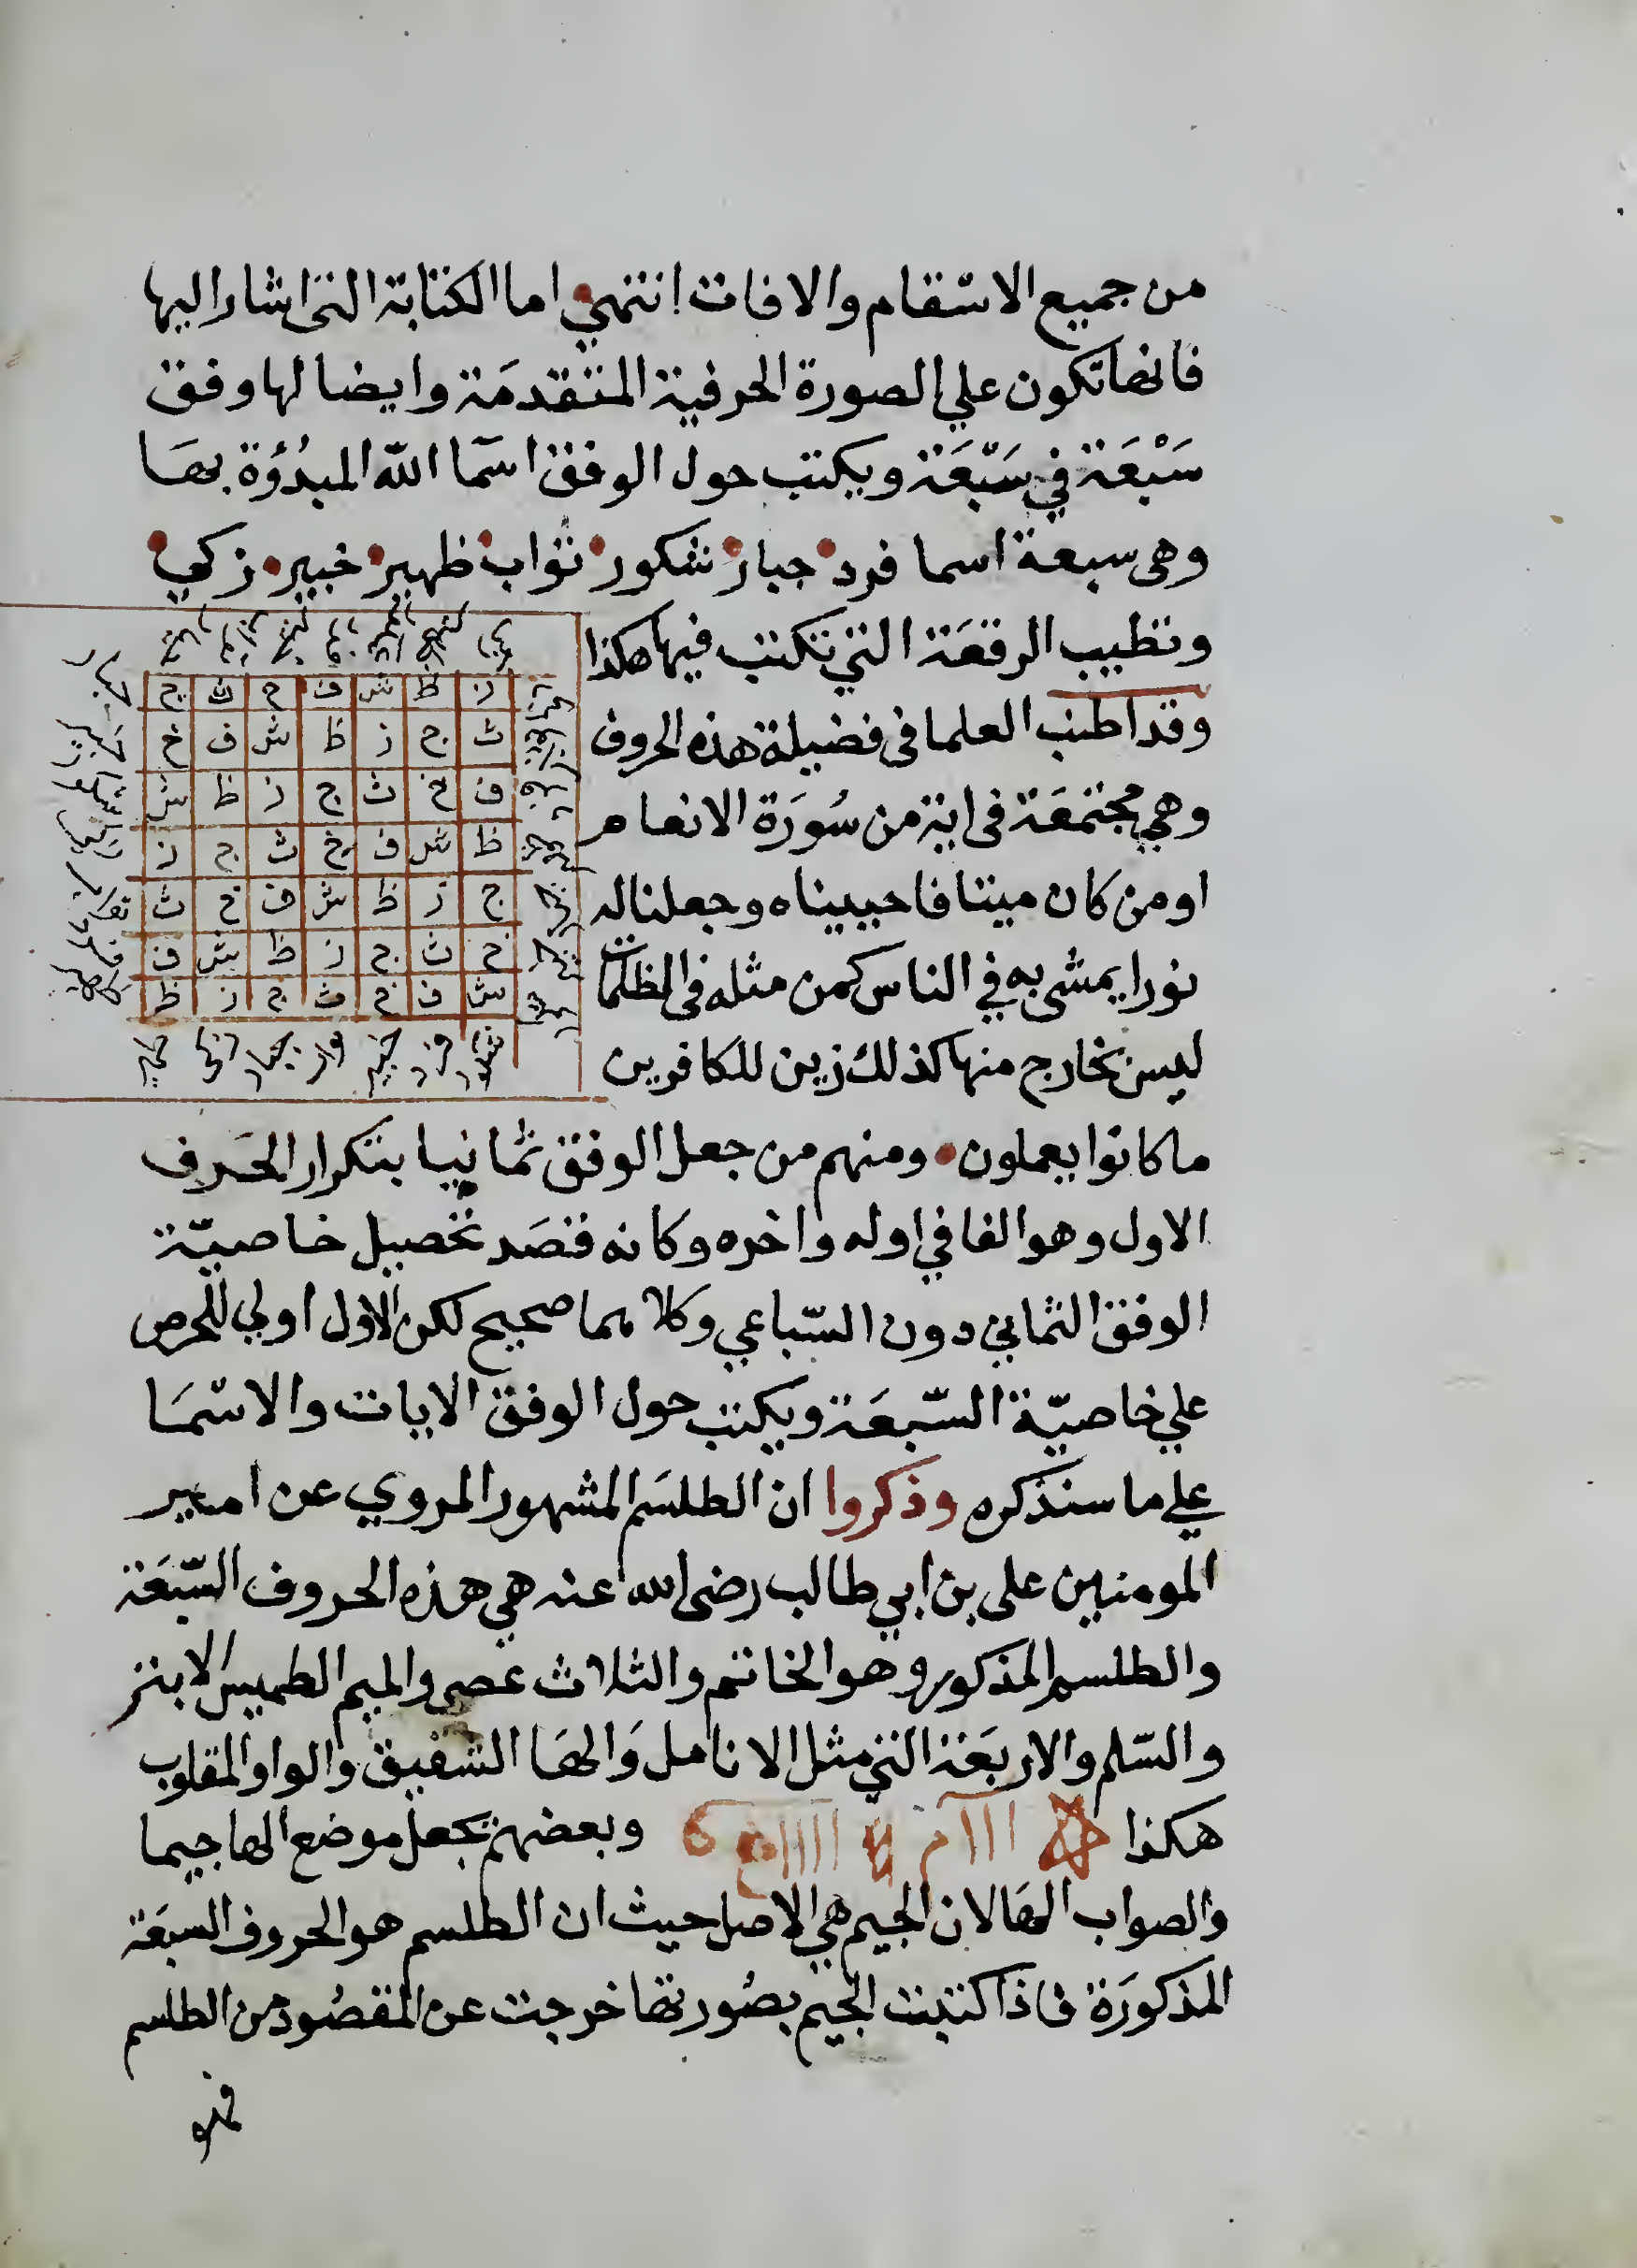 من جميع الاسقام والافات انتهي اما الكتابة التى اشار اليها
فانها تكون علي الصورة الحرفية المتقدمَة وايضا لها وفق
سَبْعَة في سَبْعَة ويكتب حول الوفق اسما الله المبدُؤة بها
وهى سبعة اسما فرد جبار شكور ثواب ظهير خبير زكي
وتطيب الرقعَة التي تكتب فيها هكذا
ز ظ ش ف خ ث ج
وقد اطنب العلما فى فضيلة هذه الحروف
ث ج ز ظ ش ف خ
وهي مجتمعَة فى اية من سُورَة الانعام
ف خ ث ج ز ظ ش
ظ ش ف خ ث ج ز
او من كان ميتا فاحييناه وجعلنا له
ج ز ظ ش ف خ ث
نورا يمشى به في الناس كمن مثله فى الظلمات
خ ث ج ز ظ ش ف
ش ف خ ث ج ز ظ
ليس بخارج منها كذلك زين للكافرين
شكور فرد خبير جبار زكى ظهير
ما كانوا يعملون ومنهم من جعل الوفق ثمانيا بتكرار الحَرف
الاول وهو الفا في اوله واخره وكانه قصَد تحصيل خاصيّة
الوفق الثماني دون السّباعي وكلاهما صحيح لكن الاول اولي للحرص
علي خاصيّة السّبعَة ويكتب حول الوفق الايات والاسْمَا
علي ما سنذكره وذكروا ان الطلسَم المشهور المروي عن امير
المومنين على بن ابي طالب رضى الله عنه هي هذه الحروف السّبعَة
والطلسم المذكور وهو الخاتم والثلاث عصى والميم الطميس الابتر
والسّلم والاربعَة التي مثل الانامل وَالهَا الشفيق والواو المقلوب
هكذا وبعضهم يجعل موضع الها جيما
والصواب الهَا لان الجيم هي الاصل حيث ان الطلسم هو الحروف السبعَة
المذكورَة فاذا كتبت الجيم بصُورتها خرجت عن المقصُود من الطلسم